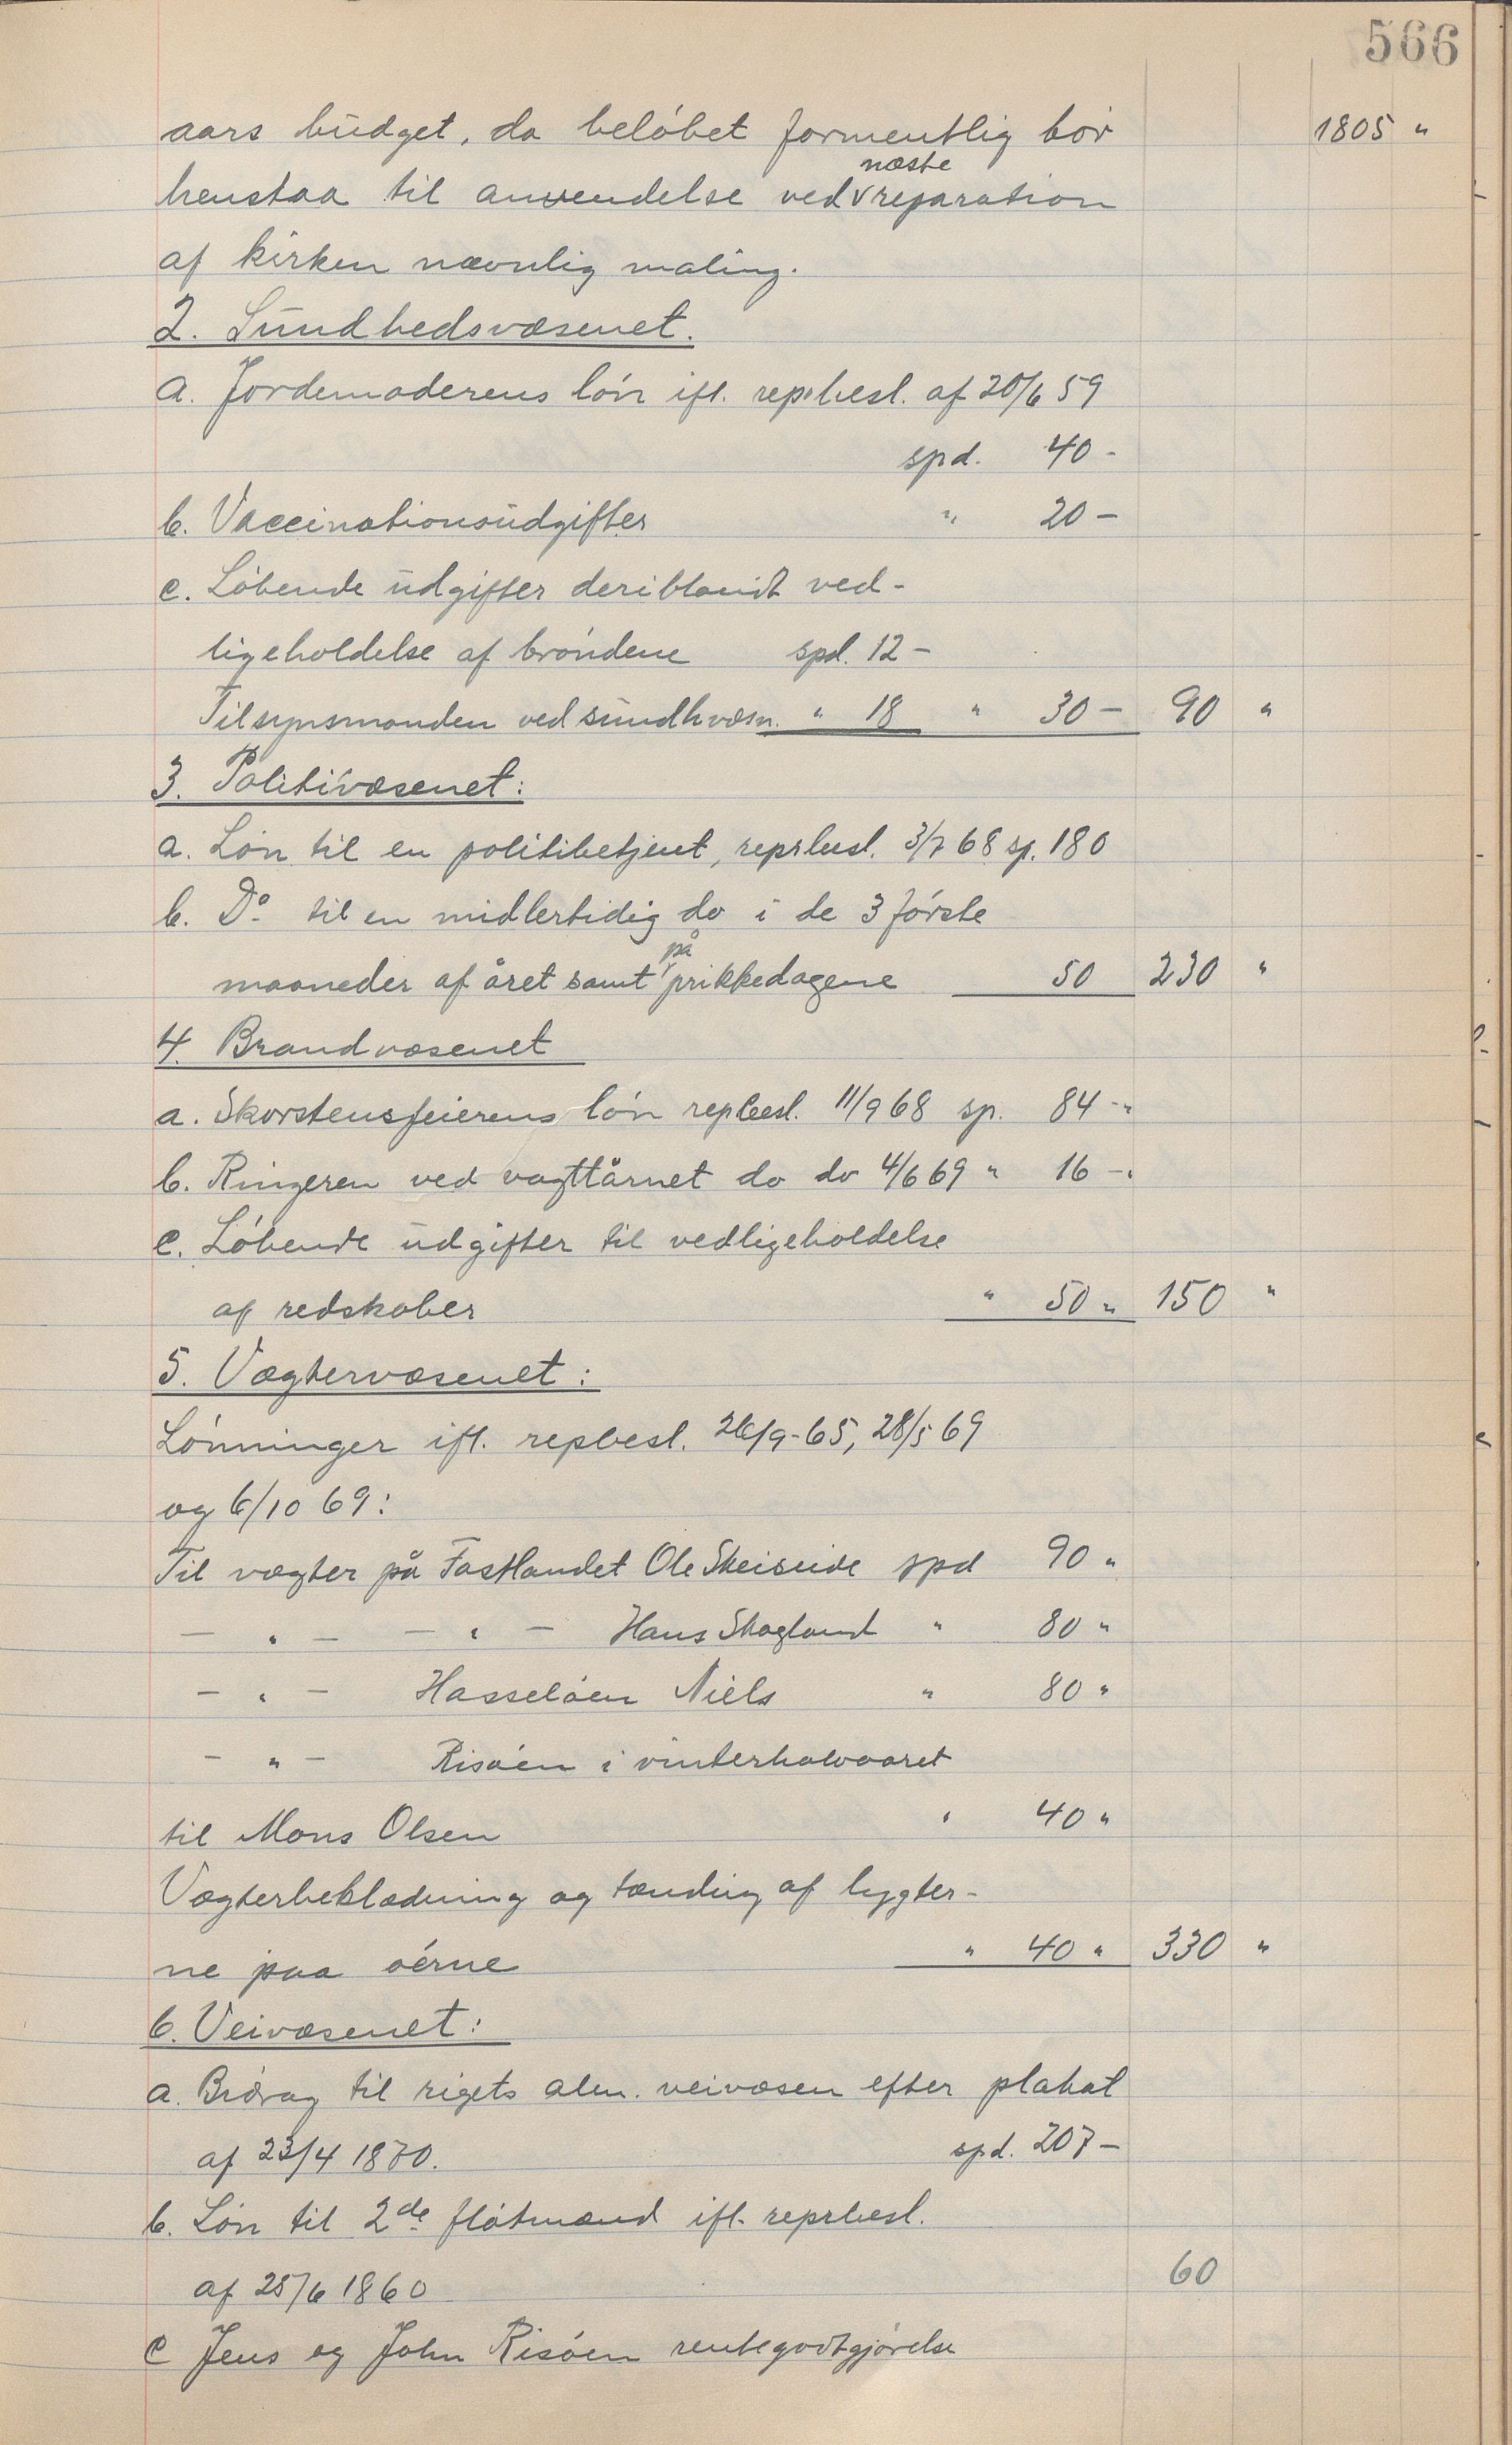 566
aars budget, da beløbet formentlig bør 1805 "
henstaa til anvendelse ved næste reparation
af kirken nævnlig maling.
2. Sundhedsvæsenet.
a. Jordemoderens løn ifl. repr.besl. af 20/6 59
spd. 40 -
b. Vaccinationsudgifter " 20 -
c. Løbende udgifter deriblandt ved-
ligeholdelse af brøndene spd. 12 -
Tilsynsmanden ved sundhvæsn. " 18 " 30 - 90 "
3. Politivæsenet:
a. Løn til en politibetjent, reprbesl. 3/7 68 sp. 180
b. Do til en midlertidig do i de 3 første
maaneder af året samt på prikkedagene 50 230 "
4. Brandvæsenet
a. Skorstensfeierens løn repbesl. 11/9 68 sp. 84 - "
b. Ringeren ved vagttårnet do do 4/6 69 " 16 - "
c. Løbende udgifter til vedligeholdelse
af redskaber " 50 " 150 "
5. Vægtervæsenet:
Lønninger ifl. repbesl. 26/9-65, 28/5 69
og 6/10 69:
Til vægter på Fastlandet Ole Skeiseide spd 90 "
- " - - " - Hans Skagland " 80 "
- " - Hasseløen Niels " 80 "
- " - Risøen i vinterhalvaaret
til Mons Olsen " 40 "
Vægterbeklædning og tænding af lygter-
ne paa øerne " 40 " 330 "
6. Veivæsenet:
a. Bidrag til rigets alm. veivæsen efter plakat
af 23/4 1870. spd. 207 -
b. Løn til 2de fløtmænd ifl. reprbesl.
af 25/6 1860 60
c Jens og John Risøen rentegodtgjørelse